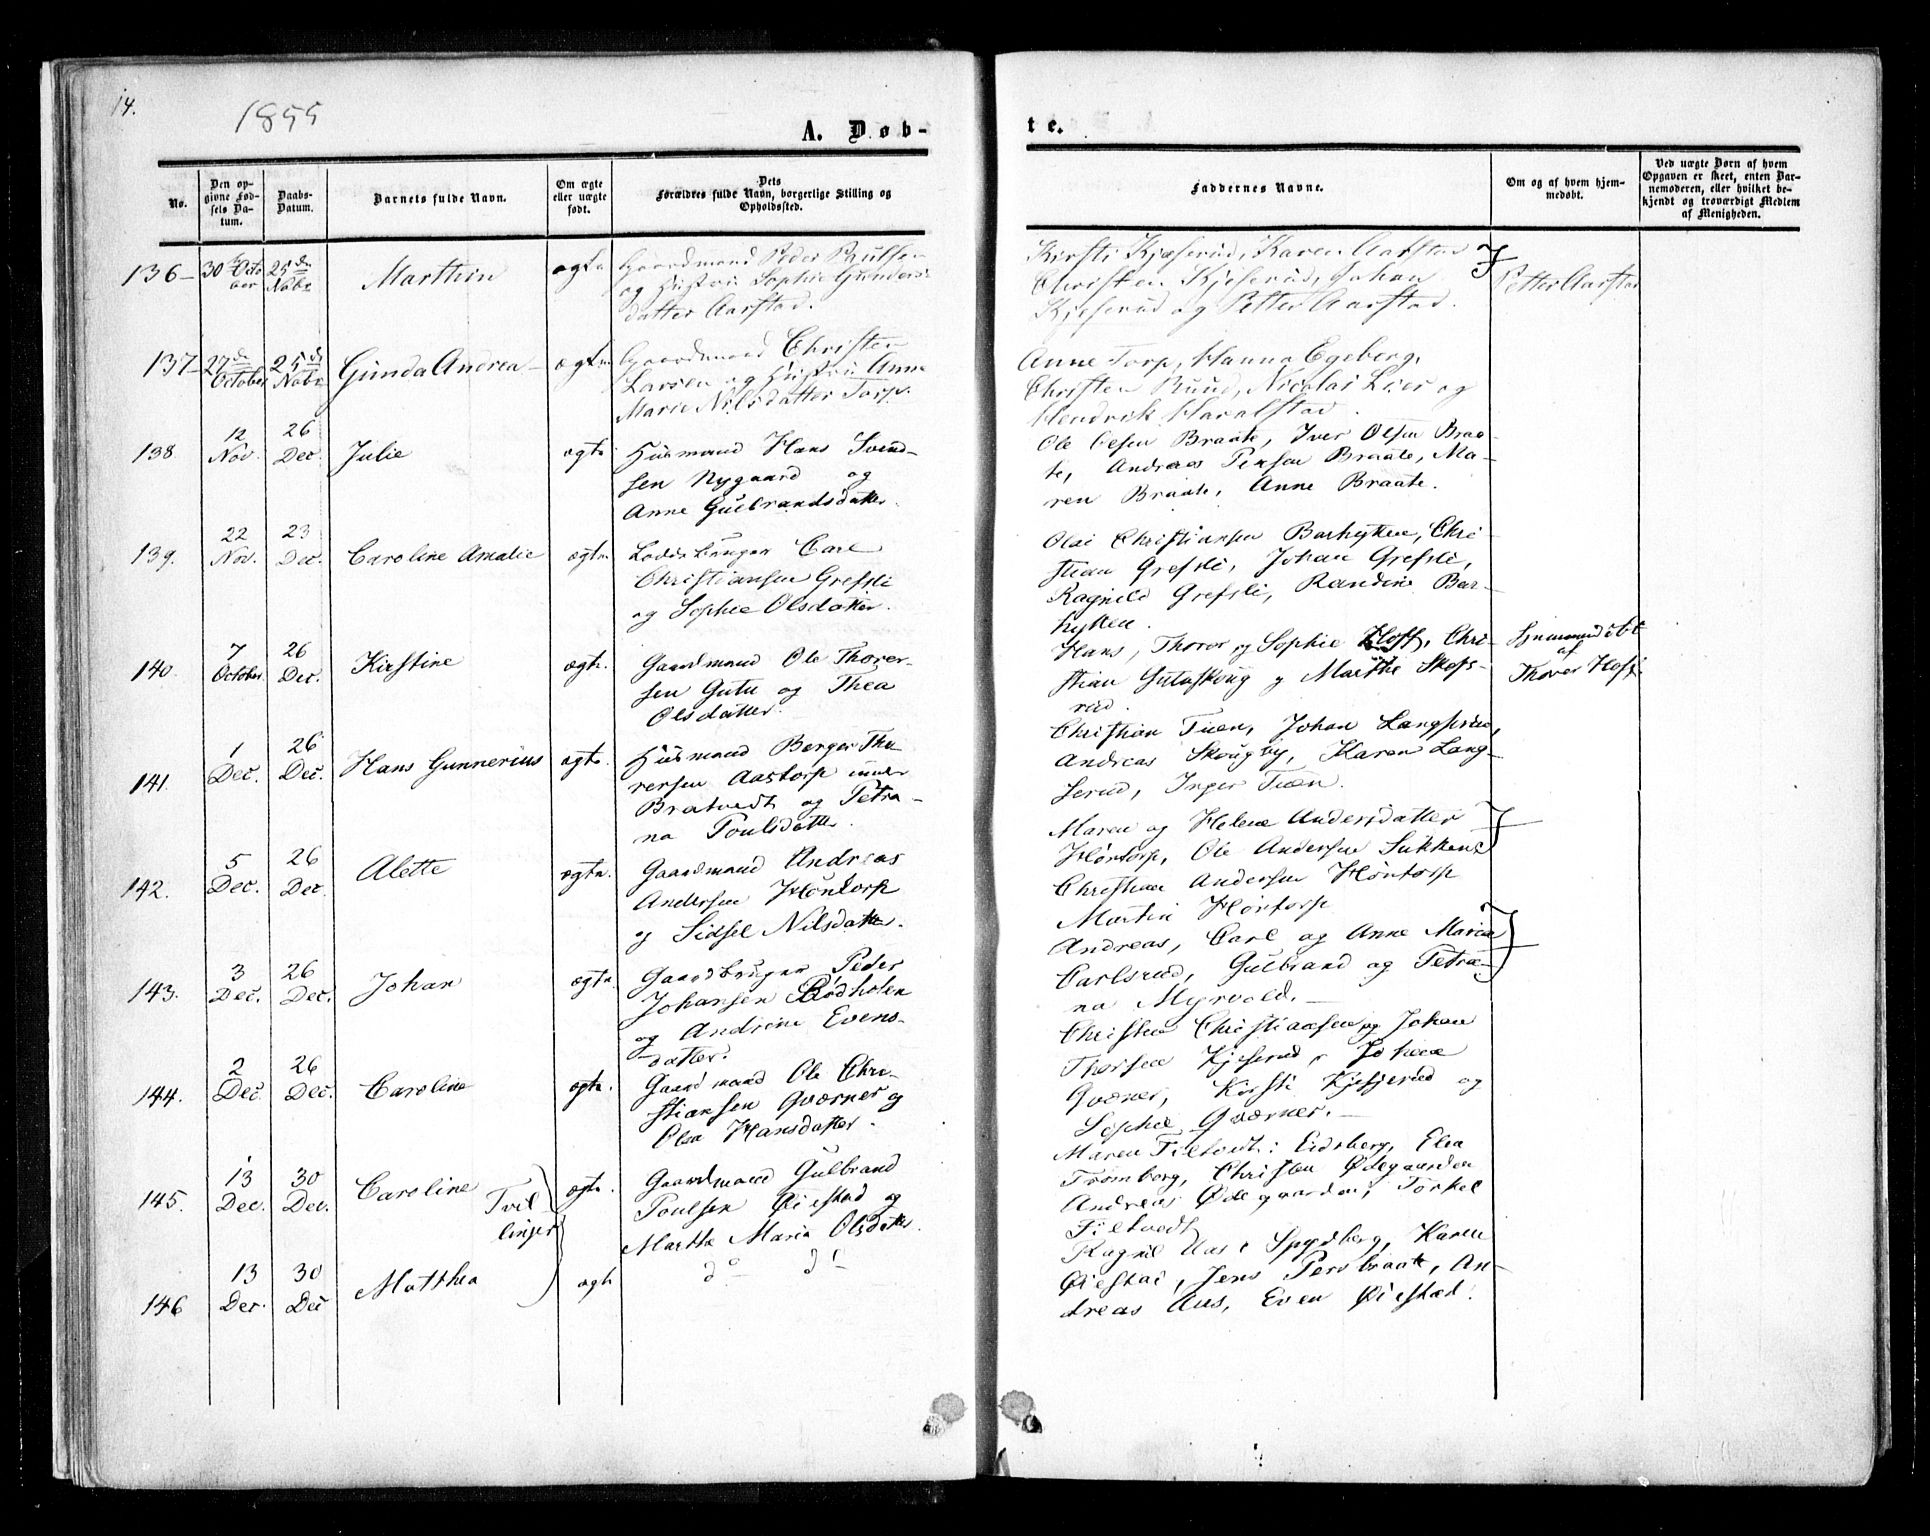 14.
1855
A. Døb-
te.
No.
Den op-
givne Fød-
sels Da-
tum.
Daabs-
Datum.
Barnets fulde Navn.
Om ægte
eller uægte
født.
Dets
Forældres fulde Navn, borgerlige Stilling og
Opholdssted.
Faddernes Navne.
Om og af hvem hjem-
medøbt.
Ved uægte Børn af hvem
Opgaven er skeet, enten Bar-
nemoderen, eller hvilket be-
kjendt og troværdigt Medlem
af Menigheden.
136 30 Octo
ber
25de
Novbr
Marthin
ægte
Gaardmand Peder Paulsen
og Hustru Sophie Gunders
datter Aarstad.
Kirsti Kjæserud, Karen Aarstad
Christen Kjeserud, Johan
Kjeserud og Petter Aarstad.
Petter Aarstad
137 27de
October
25de
Novbr
Gunda Andrea
ægte
Gaardmand Christen
Larsen og Hustru Anne
Marie Nilsdatter Torp.
Anne Torp, Hanna Egeberg,
Christen Ruud, Nicolai Lier og
Hendrik Haralstad.
138
12
Nov.
26
Dec.
Julie
ægte
Huusmand Hans Svend-
sen Nygaard og
Anne Gulbrandsdatter.
Ole Olsen Braate, Iver Olsen Braa-
te, Andreas Braate, Ma-
ren Braate, Anne Braate.
139.
22
Nov.
23
Dec.
Caroline Amalie
ægte
Carl
Christiansen Grefsli
og Sophie Olsdatter.
Olai Christiansen Barhytten, Chri-
stian Grefsli, Johan Grefsli,
Ragnild Grefsli, Randine Bar-
hytten.
140.
7
October.
26
Dec.
Kirstine
ægte.
Gaardmand Ole Thorer-
sen Gutu og Thea
Olsdatter.
Hans, Thorer og Sophie Hoff, Chri-
stian Gutuskoug og Marthe Skofs-
rud.
Hjemmedøbt
af
Thorer Hoff.
141.
1
Dec.
26
Dec.
Hans Gunnerius
ægte.
Huusmand Borger Tho-
rersen Aastorp under
Bratvedt og Petra-
na Poulsdatter.
Christian Tuen, Johan Langsrud,
Andreas Skougby, Karen Lang-
serud, Inger Tuen.
142.
5
Dec.
26
Dec
Alette
ægte.
Gaardmand Andreas
Andersen Hörtorp
og Sidsel Nilsdatter.
Maren og Helene Andersdatter
Hörtorp, Ole Andersen Sukken
Christian Andersen Hörtorp
Martin Hörtorp
143.
3
Dec.
26
Dec.
Johan
ægte.
Gaardbruger Peder
Johansen Rödholen
og Andrine Evens-
datter.
Andreas, Carl og Anne Maria
Carlsrud, Gulbrand og Petra-
na Myrvold.
144.
2
Dec.
26
Dec.
Caroline
ægte.
Gaardmand Ole Chri-
stiansen Qværner og
Olea Hansdatter.
Christen Christiansen og Johan
Thorsen Kjeserud, Johan
Qværner, Kirsti Kjeserud og
Sophie Qværner.
145.
13
Dec.
30
Dec.
Caroline
Tvil-
linger
ægte.
Gaardmand Gulbrand
Poulsen Öiestad og
Marthe Maria Olsdatter.
Maren Filtvedt i Eidsberg, Elea
Tromborg, Christen Ödegaarden
Andreas Ödegaarden, Torkel
Filtvedt
146
13
Dec.
30
Dec
Matthea
ægte
do do
Ragnil Aas i Spydberg, Karen
Öiestad, Jens Persbraate, An-
dreas Aas, Even Öiestad.